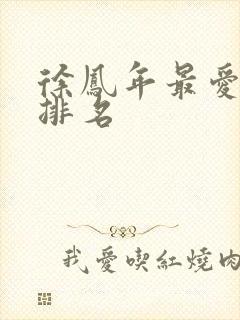 徐鳳年最愛
排名
我愛喫紅燒肉